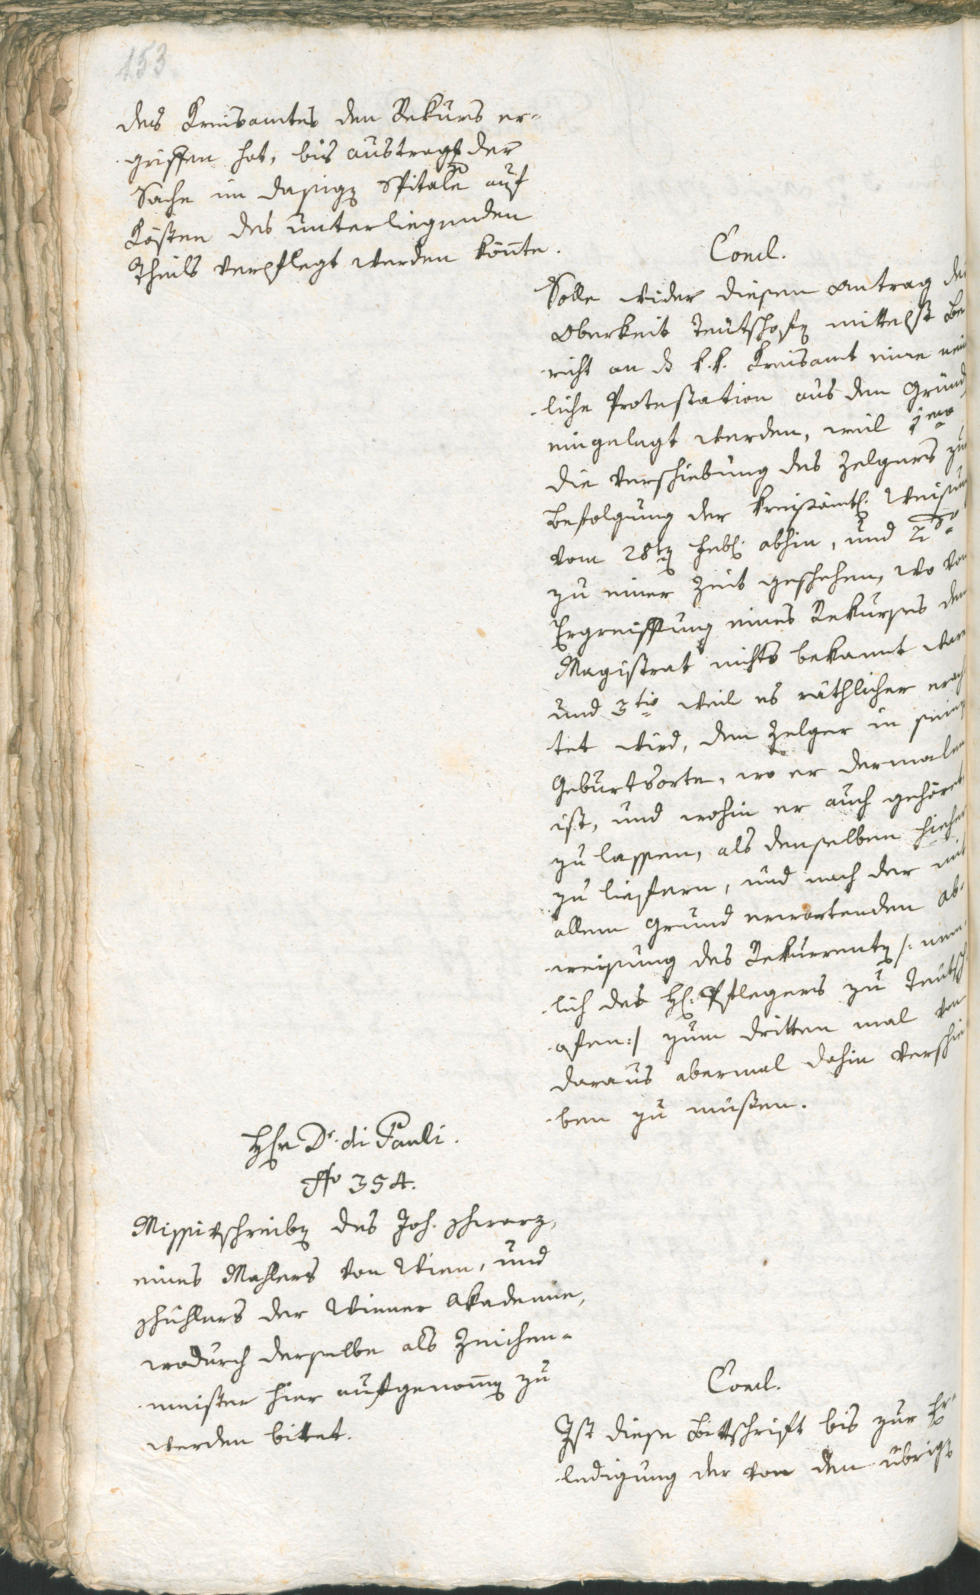 153
des Kreisamtes den Rekurs er-
griffen hat, bis austrag der
Sache im dasigen Spitale auf
Kösten des unterliegenden
Theils verpflegt werden könnte.
Concl.
Solle wider diesen Antrag der
Oberkeit Teutschofen mittelst Be
richt an das k.k. Kreisamt eine
liche Protestation aus dem Grund
eingelegt werden, weil 1mo
die Verschiebung des Zelgers zu
Befolgung der kreisämtl. Weisung
vom 28ten Febr. abhin, und 2do
zu einer Zeit geschehen, wo von
Ergreiffung eines Rekurses dem
Magistrat nichts bekannt war
und 3tio weil es räthlicher erach
tet wird, den Zelger in seinem
Geburtsorte, wo er dermalen
ist, und wohin er auch gehöret
zu lassen, als denselben hieher
zu liefern, und nach der mit
allem Grund erwartenden Ab-
weisung des Rekurrenten /: nem
lich des H. Pflegers zu Teutsch
ofen :/ zum dritten mal von
daraus abermal dahin verschie
ben zu müßen.
Hr Dr. di Pauli.
No 354.
Missivschreiben des Joh. Schwarz,
eines Mahlers von Wien, und
Schühlers der Wiener Akademie,
wodurch derselbe als Zeichen-
meister hier aufgenommen zu
werden bittet.
Concl.
Ist diese Bittschrift bis zur Er-
ledigung der von den übrigen